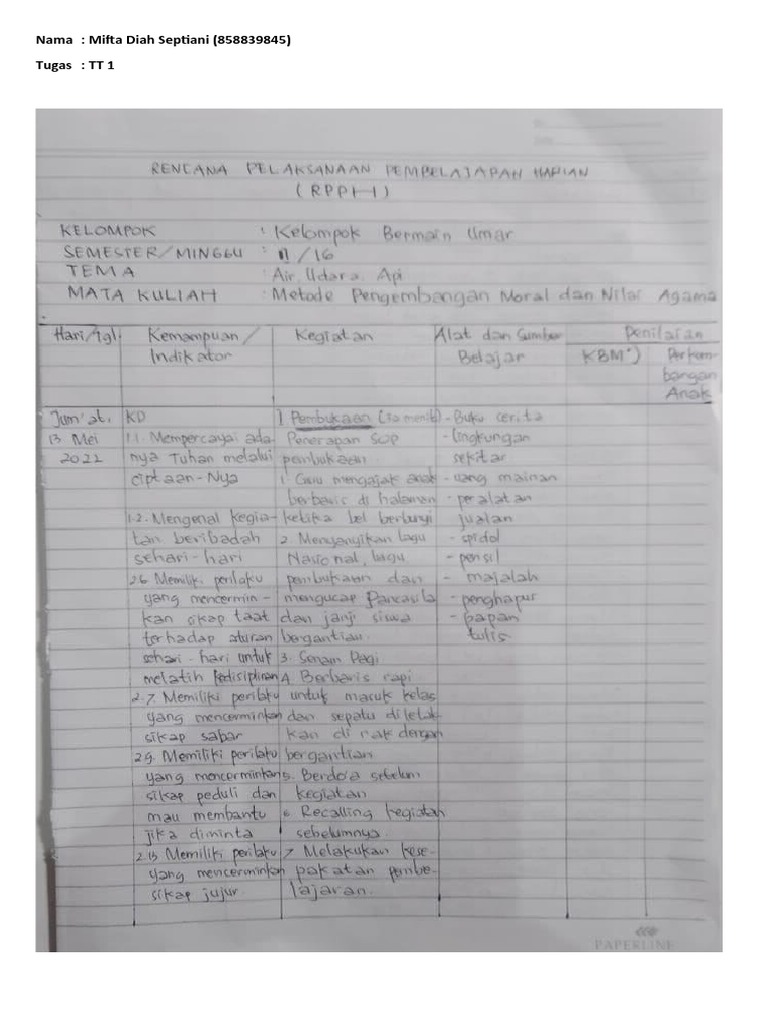 Nama : Mifta Diah Septiani (858839845)
Tugas : TT 1
RENCANA PELAKSANAAN PEMBELAJARAN HARIAN
(RPPH)
KELOMPOK : Kelompok Bermain Umar
SEMESTER/MINGGU : II/16
TEMA : Air, Udara, Api
MATA KULIAH : Metode Pengembangan Moral dan Nilai Agama
Hari/Tgl
Kemampuan/
Indikator
Kegiatan
Alat dan Sumber
Belajar
Penilaian
KBM*)
Perkem-
bangan
Anak
Jum'at,
13 Mei
2022
KD
1.1. Mempercayai ada-
nya Tuhan melalui
ciptaan-Nya
1.2. Mengenal kegia-
tan beribadah
sehari-hari
2.6 Memiliki perilaku
yang mencermin-
kan sikap taat
terhadap aturan
sehari-hari untuk
melatih kedisiplinan
2.7. Memiliki perilaku
yang mencerminkan
sikap sabar
2.9. Memiliki perilaku
yang mencerminkan
sikap peduli dan
mau membantu
jika diminta
2.13 Memiliki perilaku
yang mencerminkan
sikap jujur.
I Pembukaan (30 menit)
Penerapan SOP
pembukaan
1. Guru mengajak anak
berbaris di halaman
ketika bel berbunyi
2. Menyanyikan lagu
Nasional, lagu
pembukaan dan
mengucap Pancasila
dan janji siswa
bergantian.
3. Senam Pagi
4. Berbaris rapi
untuk masuk kelas
dan sepatu diletak
kan di rak dengan
bergantian
5. Berdo'a sebelum
kegiatan
6 Recalling kegiatan
sebelumnya.
7 Melakukan kese-
pakatan pembe-
lajaran.
- Buku cerita
- lingkungan
sekitar
- uang mainan
- peralatan
jualan
- spidol
- pensil
- majalah
- penghapur
- papan
tulis
PAPERLINE